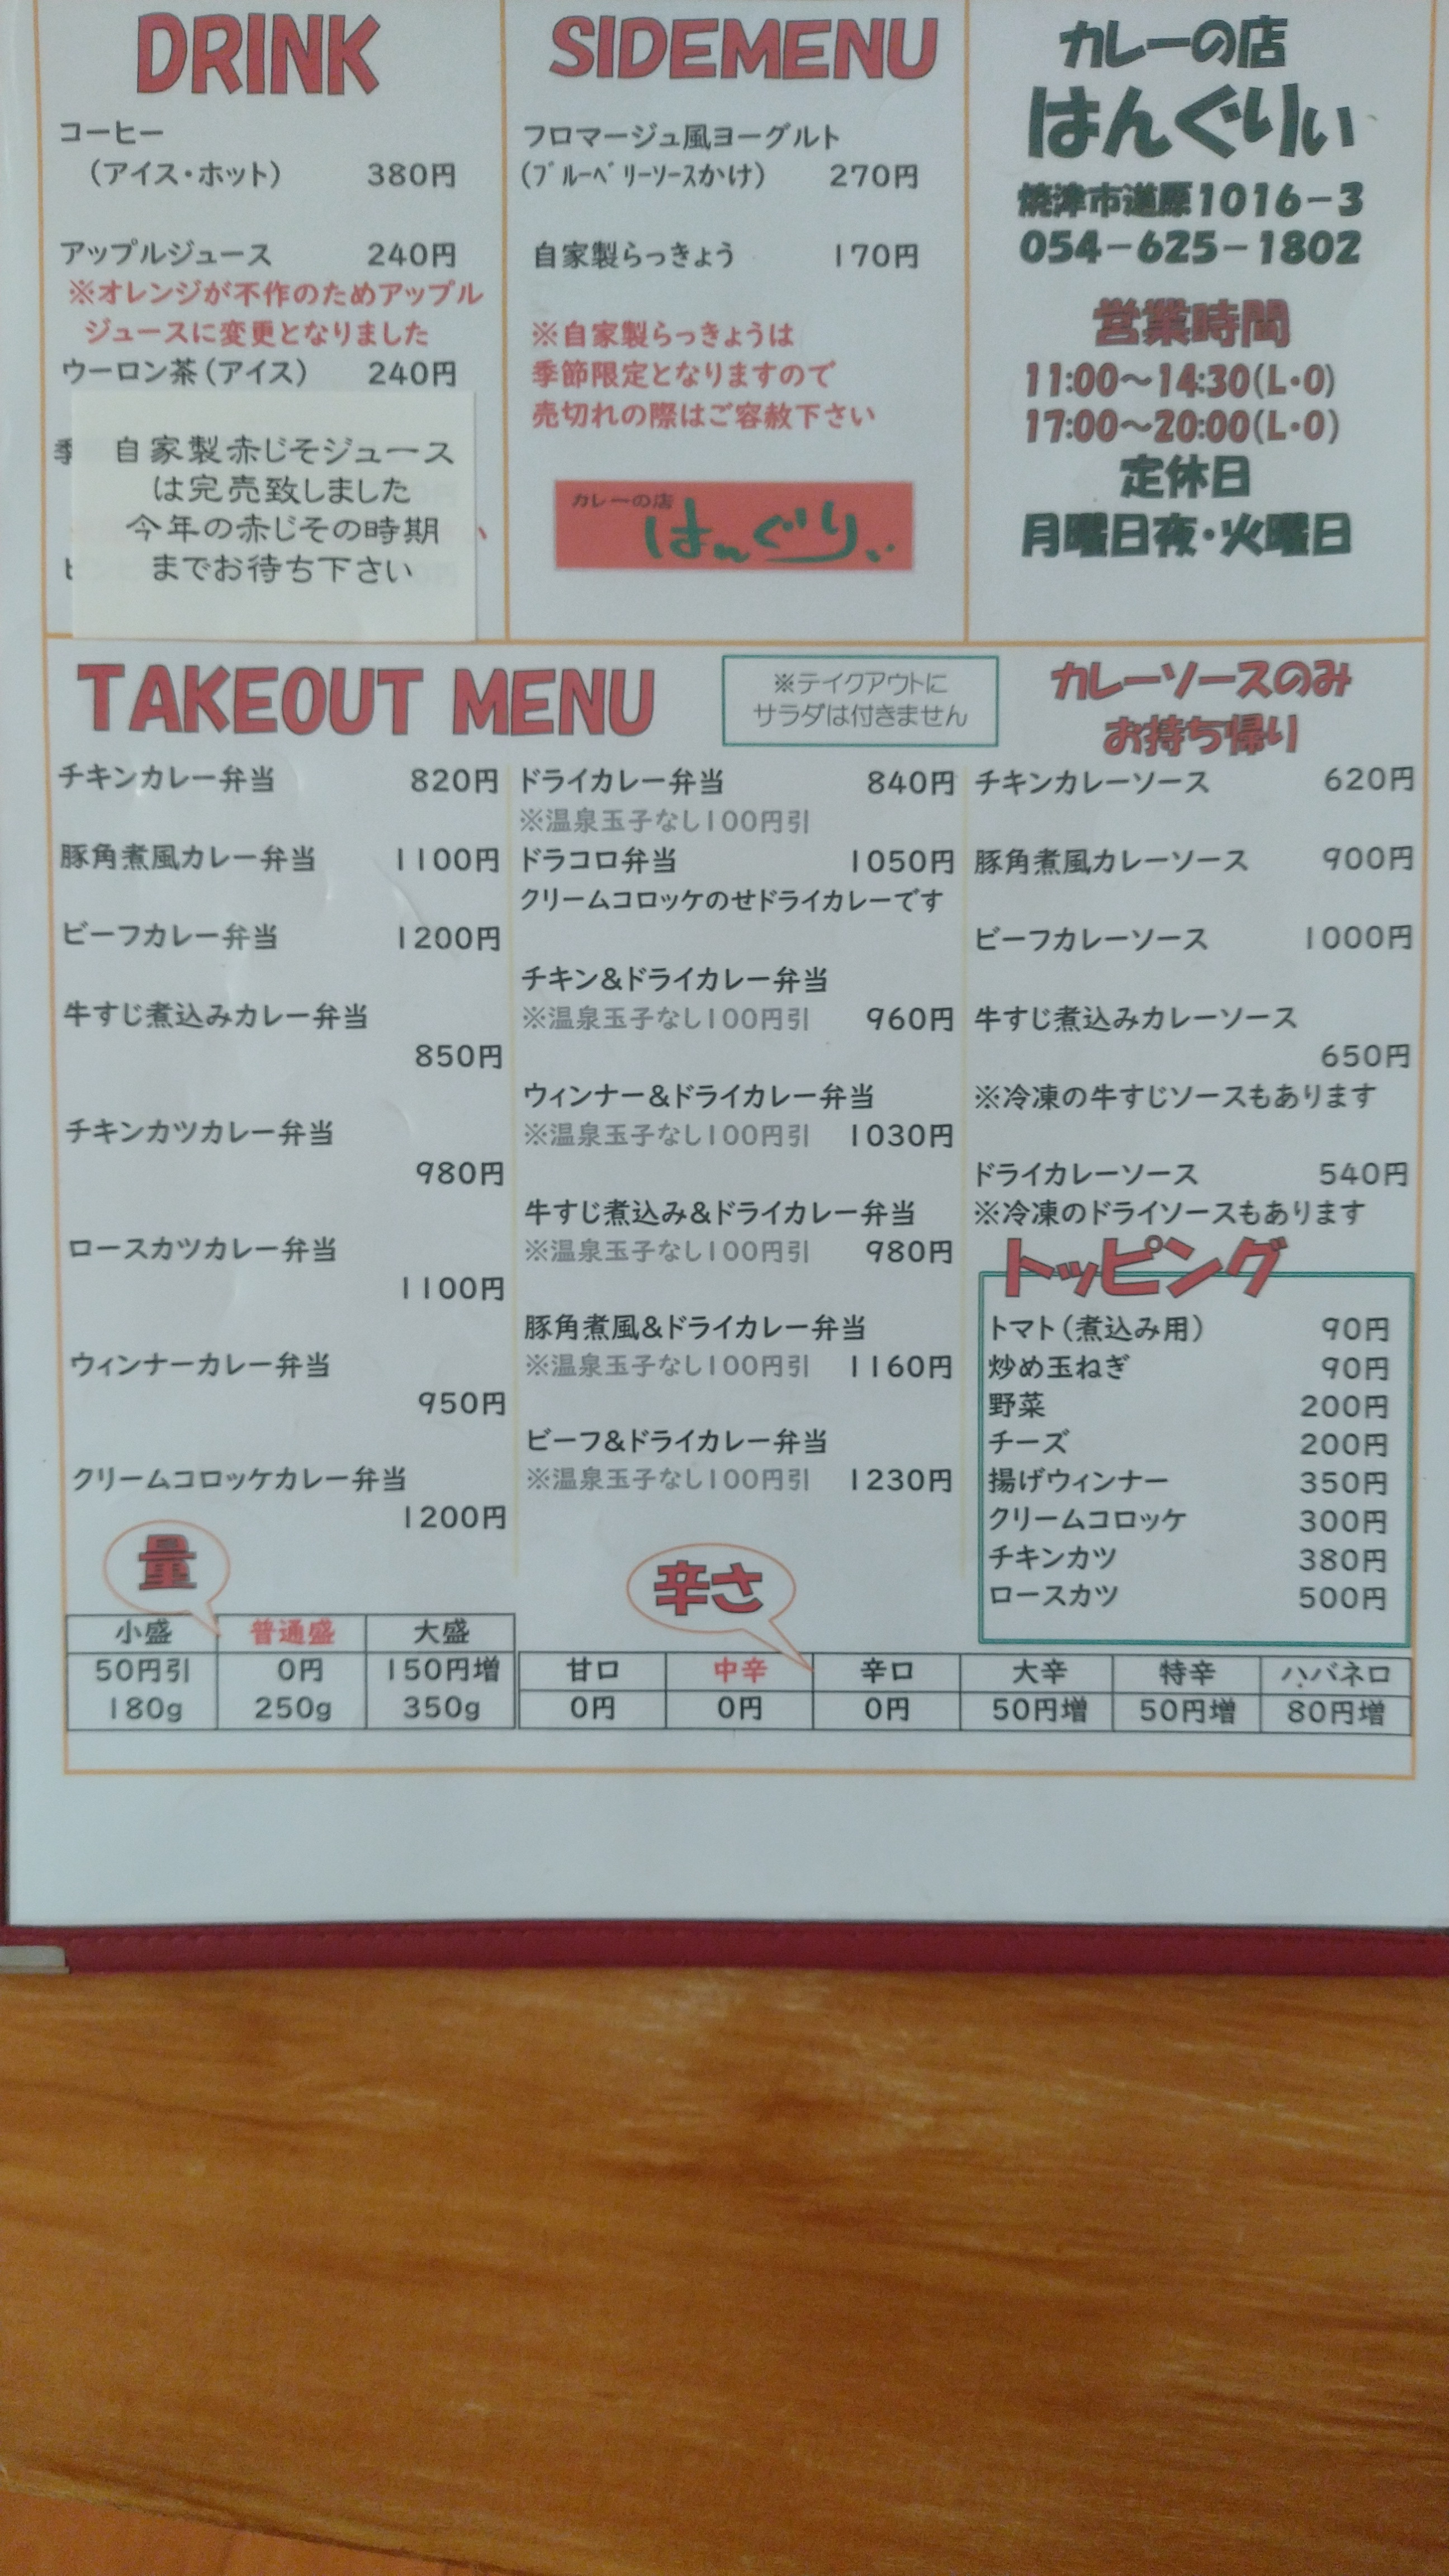 DRINK
コーヒー
（アイス・ホット） 380円
アップルジュース 240円
※オレンジが不作のためアップル
ジュースに変更となりました
ウーロン茶（アイス） 240円
季
自家製赤じそジュース
は完売致しました
今年の赤じその時期
までお待ち下さい
SIDEMENU
フロマージュ風ヨーグルト
（ﾌﾞﾙｰﾍﾞﾘｰｿｰｽかけ） 270円
自家製らっきょう 170円
※自家製らっきょうは
季節限定となりますので
売切れの際はご容赦下さい
カレーの店
はんぐりぃ
カレーの店
はんぐりぃ
焼津市道原1016－3
054－625－1802
営業時間
11:00～14:30(L・O)
17:00～20:00(L・O)
定休日
月曜日夜・火曜日
TAKEOUT MENU
※テイクアウトに
サラダは付きません
チキンカレー弁当 820円
豚角煮風カレー弁当 1100円
ビーフカレー弁当 1200円
牛すじ煮込みカレー弁当
850円
チキンカツカレー弁当
980円
ロースカツカレー弁当
1100円
ウィンナーカレー弁当
950円
クリームコロッケカレー弁当
1200円
ドライカレー弁当 840円
※温泉玉子なし100円引
ドラコロ弁当 1050円
クリームコロッケのせドライカレーです
チキン&ドライカレー弁当
※温泉玉子なし100円引 960円
ウィンナー&ドライカレー弁当
※温泉玉子なし100円引 1030円
牛すじ煮込み&ドライカレー弁当
※温泉玉子なし100円引 980円
豚角煮風&ドライカレー弁当
※温泉玉子なし100円引 1160円
ビーフ&ドライカレー弁当
※温泉玉子なし100円引 1230円
カレーソースのみ
お持ち帰り
チキンカレーソース 620円
豚角煮風カレーソース 900円
ビーフカレーソース 1000円
牛すじ煮込みカレーソース
650円
※冷凍の牛すじソースもあります
ドライカレーソース 540円
※冷凍のドライソースもあります
トッピング
トマト（煮込み用） 90円
炒め玉ねぎ 90円
野菜 200円
チーズ 200円
揚げウィンナー 350円
クリームコロッケ 300円
チキンカツ 380円
ロースカツ 500円
量
小盛 普通盛 大盛
50円引 0円 150円増
180g 250g 350g
辛さ
甘口 中辛 辛口 大辛 特辛 ハバネロ
0円 0円 0円 50円増 50円増 80円増